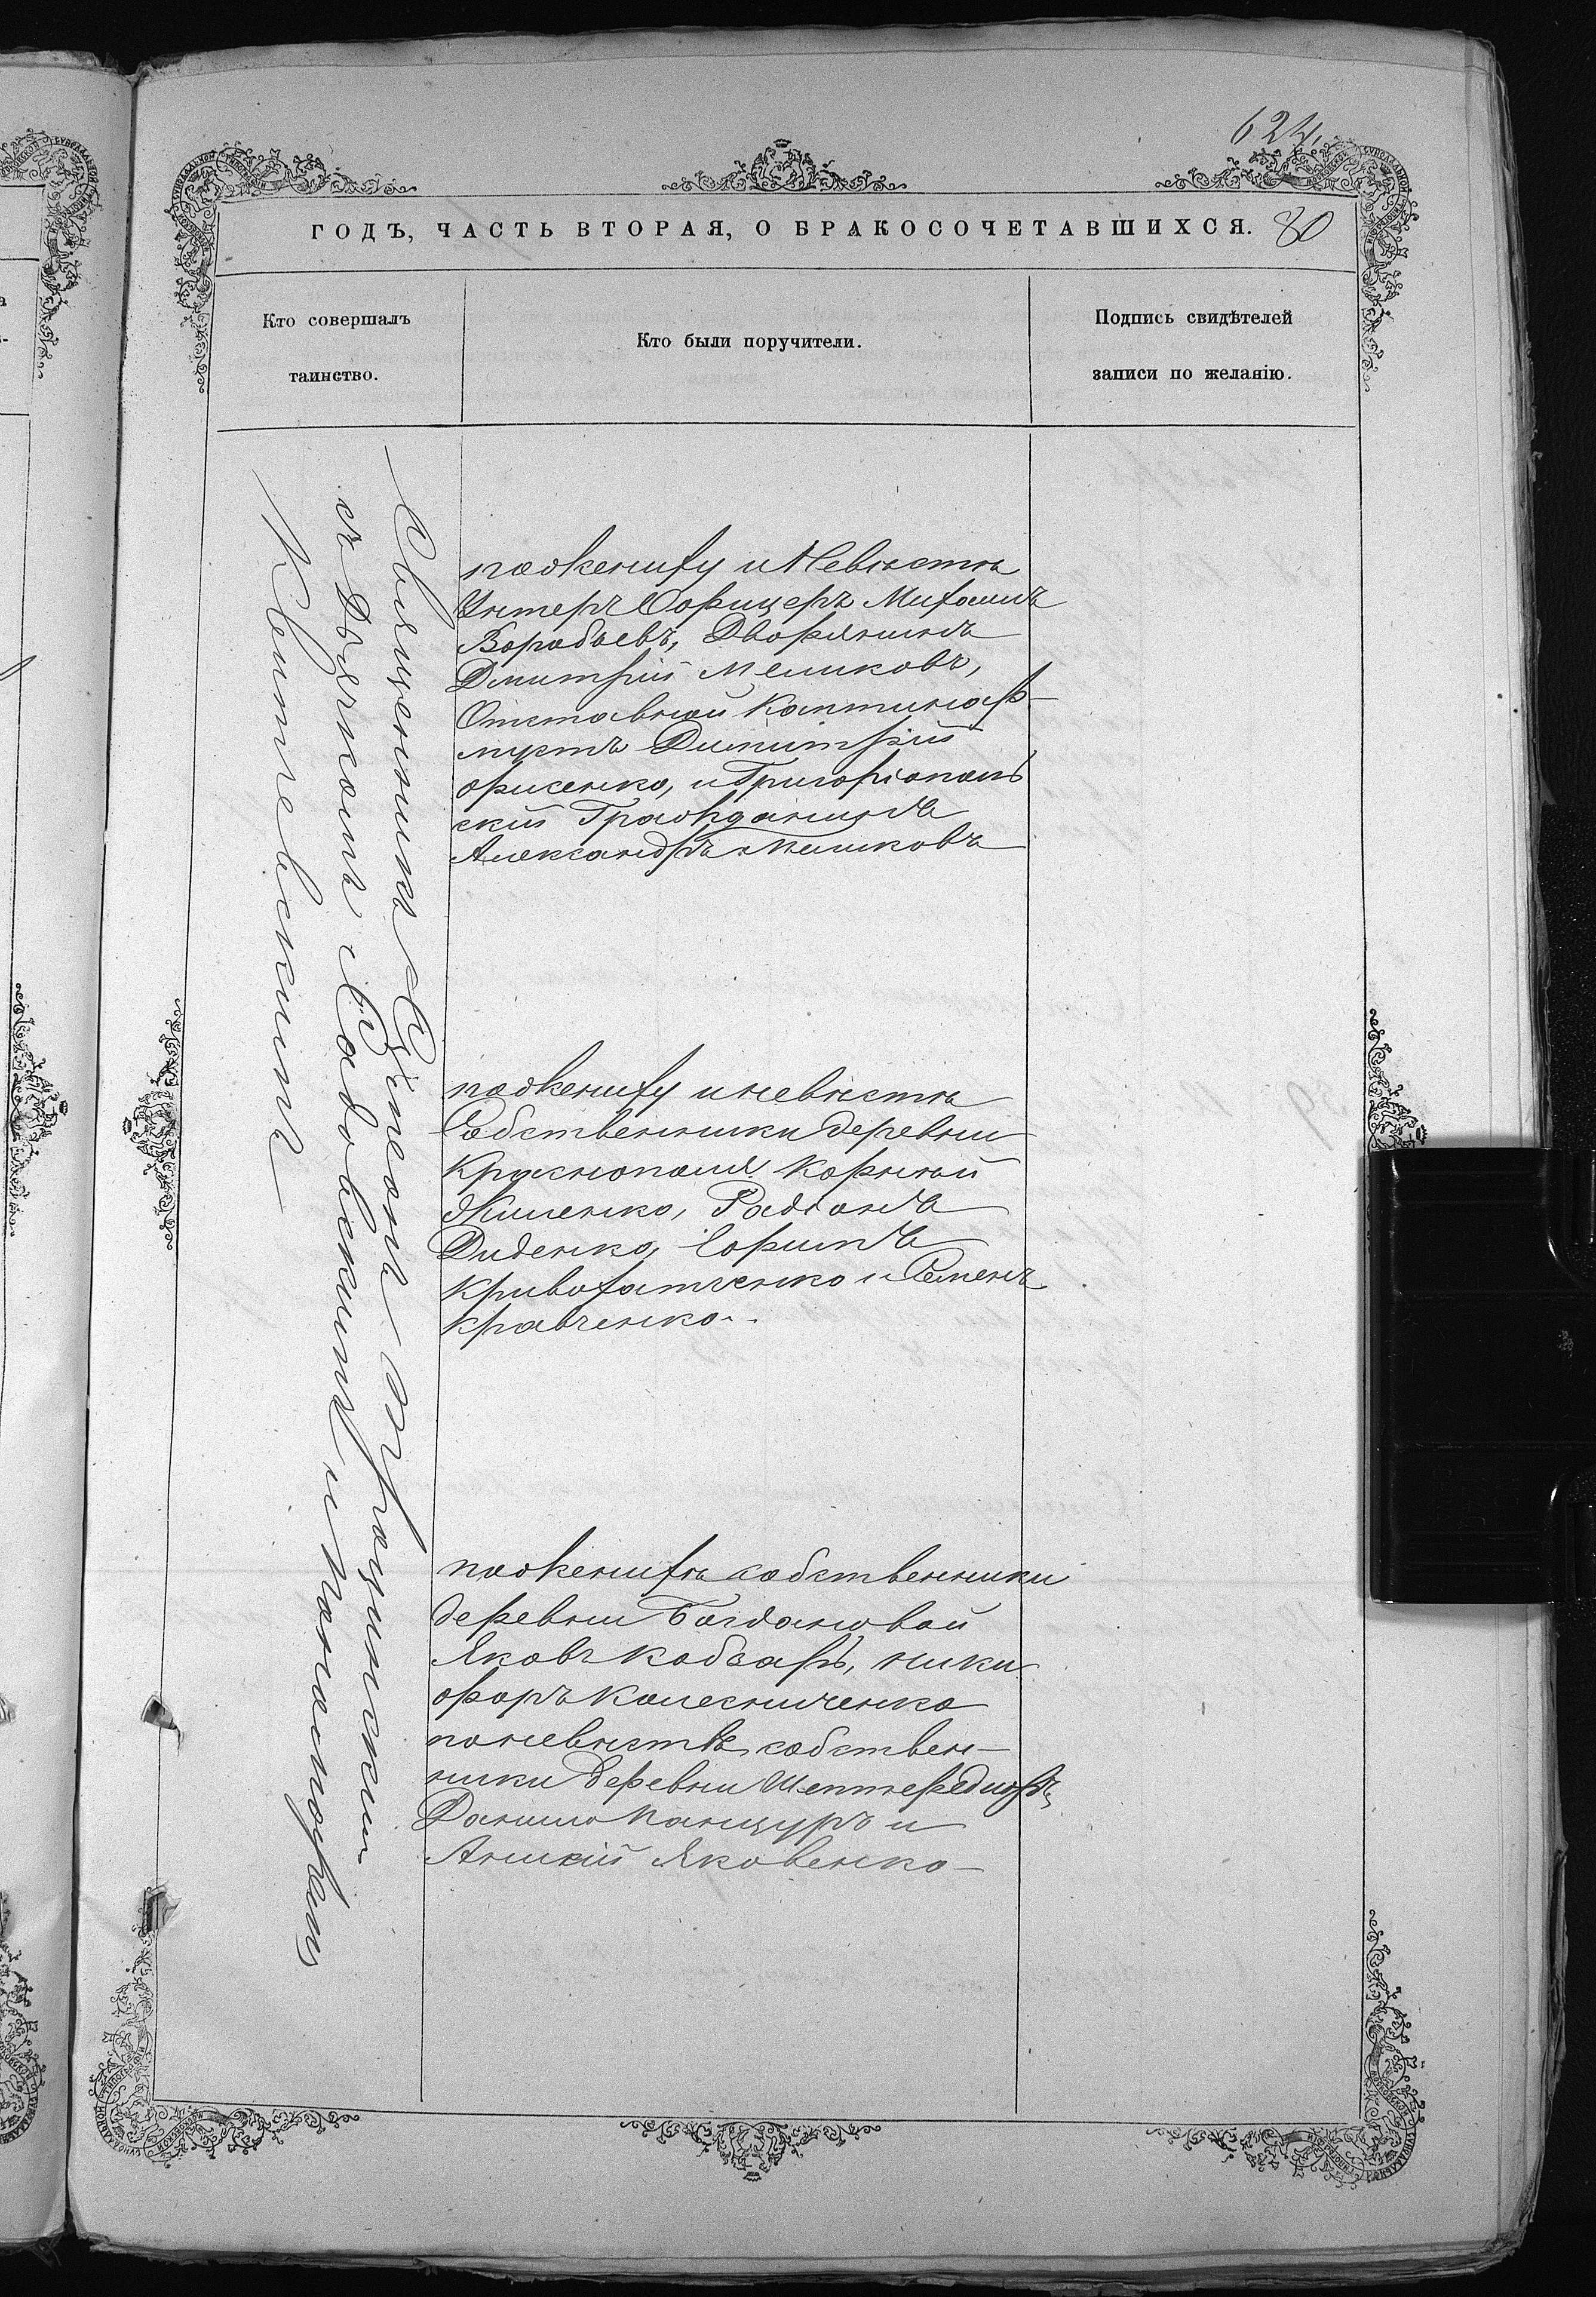 624.
ГОДЪ, ЧАСТЬ ВТОРАЯ, О БРАКОСОЧЕТАВШИХСЯ. 80
Кто совершалъ
таинство.
Кто были поручители.
Подпись свидѣтелей
записи по желанію.
Священникъ Стефанъ
съ Дьякономъ Савовскимъ и Пономаремъ
пожениху и Невѣстѣ
Унтеръ Офицеръ Михаилъ
Воробьевъ, Дворянинъ
Дмитрій Меликовъ,
Отставной Каптинар-
мустъ Димитрій
фисенко, и Григоріополь
скій Гражданинъ
Александръ Меликовъ
пожениху и невѣстѣ
Собственники деревни
Краснополя Корнѣй
Жиленко, Радіонъ
Диденко, Ефимъ
Кривохатченко и Семенъ
Кравченко.
поженихѣ собственники
деревни Богдановой
Яковъ Кобзарь, ники
форъ Колесниченко
поневѣстѣ собствен-
ники деревни
Данило Канцуръ и
Яковенко